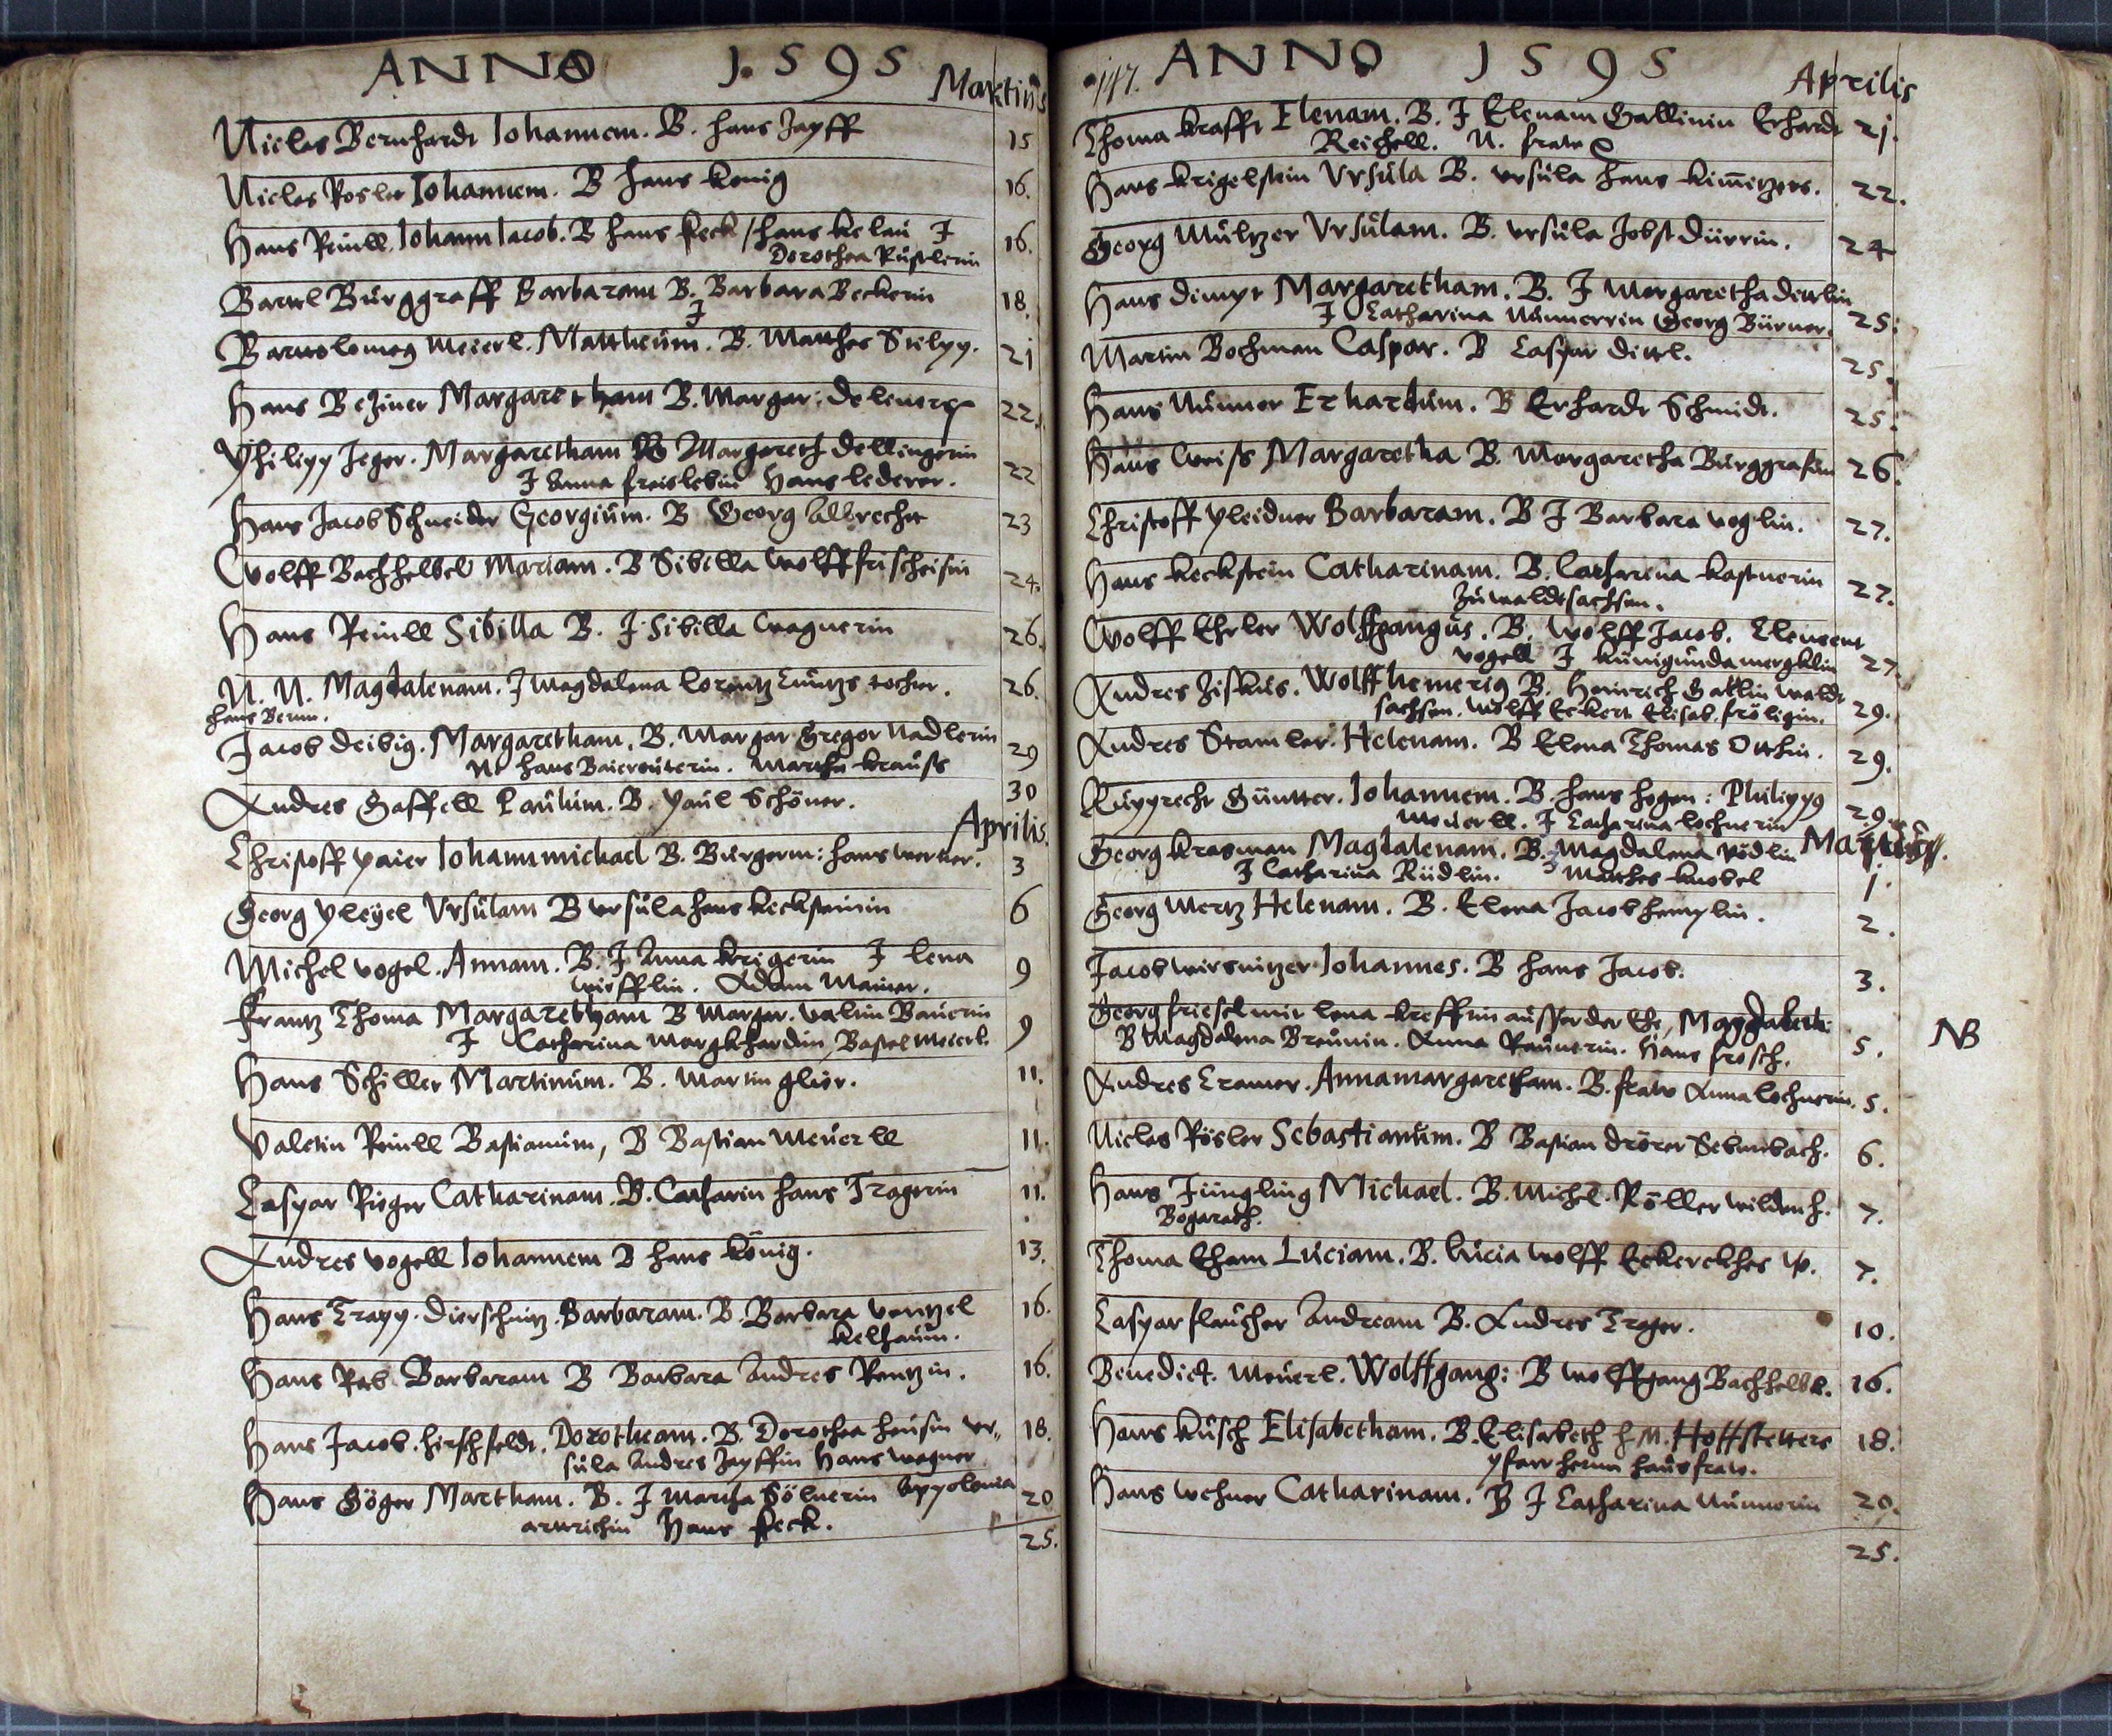 ANNO 1595
Martius
Niclas Bernhardt Iohannem. B. Hans Zayff 15
Niclas Rosler Iohannem. B Hans König 16.
Hans Reinll Iohann Iacob. B Hans Keck / Hans Kelau J 16.
Dorothea
Bartl Burggraff Barbaram B. Barbara Beckerin 18.
J
Bartholomeg Meierl. Mattheum. B. Matthes 21
Hans Beziner Margaretham B. Margar: 22.
Philipp Jeger. Margaretham B Margareth Dellingerin 22
J Anna freislebin Hans Lederer.
Hans Jacob Schneider Georgium. B Georg Albrecht 23
Wolff Bachhelbel Mariam. B Sibilla Wolff frischeisin 24.
Hans Reinll Sibilla B. J. Sibilla Wagnerin 26.
N. N. Magdalenam. J Magdalena Lorentz tochter. 26.
Hans
Jacob Deibig. Margaretham. B. Margar Gregor Nadlerin 29
N. Hans Baierreuterin. Martha Krauss
Andres Gaffell Paulum. B. Paul Schöner. 30
Aprilis.
Christoff Paier Iohannmichael B. Burgerm: Hans Werner. 3
Georg Pleyel Ursulam B Ursula Hans Recksteinin 6
Michel Vogel. Annam. B. J Anna Krigerin J Lena 9
Adam Maier.
Frantz Thoma Margaretham B Margar. Valtin Bauerin 9
J Catharina Margkhardin, Bastel Meierl.
Hans Schiller Martinum. B. Martin glier. 11.
Valetin Reinll Bastianum, B Bastian Meuerll 11.
Caspar Rüger Catharinam. B. Catharin Hans Tragerin 11.
Andres Vogell Iohannem B Hans König. 13.
Hans Trapp. Dierschnitz. Barbaram. B. Barbara Ventzel 16.
Kelhaun.
Hans Rab Barbaram B Barbara Andres Rentzin. 16.
Hans Jacob. Hirschfeldt. Dorotheam. B. Dorothea Heusin Ur,, 18.
sula Andres Zayffin Hans Wagner
Hans Göger Martham. B. J Martha Sölnerin Appolonia 20
Hans Keck.
25.
147. ANNO 1595
Aprilis
Thoma Krafft Elenam. B. J Elenam Gallinin Erhardt 21.
Reichell. N. fraw
Hans Krigelstein Ursula B. Ursula Hans 22.
Georg Mültzer Ursulam. B. Ursula Jobst Dürrin. 24
Hans Margaretham. B. J Margaretha 25.
J Catharina Nünnerrin Georg Bürner.
Martin Bochman Caspar. B Caspar Dittl. 25.
Hans Nünner Erhardum. B Erhardt Schmidt. 25.
Hans Weiss Margaretha B. Margaretha Burggrafin 26.
Christoff Pleidner Barbaram. B J Barbara Voglin. 27.
Hans Keckstein Catharinam. B. Catharina Kastnerin 27.
zu Waldtsachsen.
Wolff Ehrler Wolffgangus. B. Wolff Jacob. Clement
Vogell J Kunigunda 27.
Andres Ziskus. Wolff B. Heinrich Gallin Waldt
sachsen. Wolff Eckert Elisab. fröligin. 29.
Andres Stamler. Helenam. B Elena Thomas Otthin. 29.
Rupprecht Güntter. Iohannem. B. Hans Hogen: Philipp9 29.
Meierll. J Catharina Lochnerin
Georg Krasman Magdalenam. B. Magdalena Rödlin
J Catharina Rüdlin. Matthes Knobel 1.
Georg Mertz Helenam. B. Elena Jacob 2.
Jacob Wirsnitzer Iohannes. B Hans Jacob. 3.
Georg friesel mit Lena Kreffin ausser der Ehe, Magdalen:
B Magdalena Breunin. Anna Hans frosch. 5. NB
Andres Cramer. Annamargaretham. B. fraw Anna Lochnerin. 5.
Niclas Rösler Sebastianum. B Bastian 6.
Hans Jüngling Michael. B. Michel. Röller Wildenh. 7.
Bogarath.
Thoma Eham Luciam. B. Lucia Wolff W. 7.
Caspar flaucher Andream B. Andres Treger. 10.
Benedict. Meuerl. Wolffgang: B Wolffgang Bachhelbl. 16.
Hans Kusch Elisabetham. B. Elisabeth H. M. Hoffstetters 18.
Pfarrherrn Hausfraw.
Hans Wehner Catharinam. B J Catharina Nünnerin 20.
25.